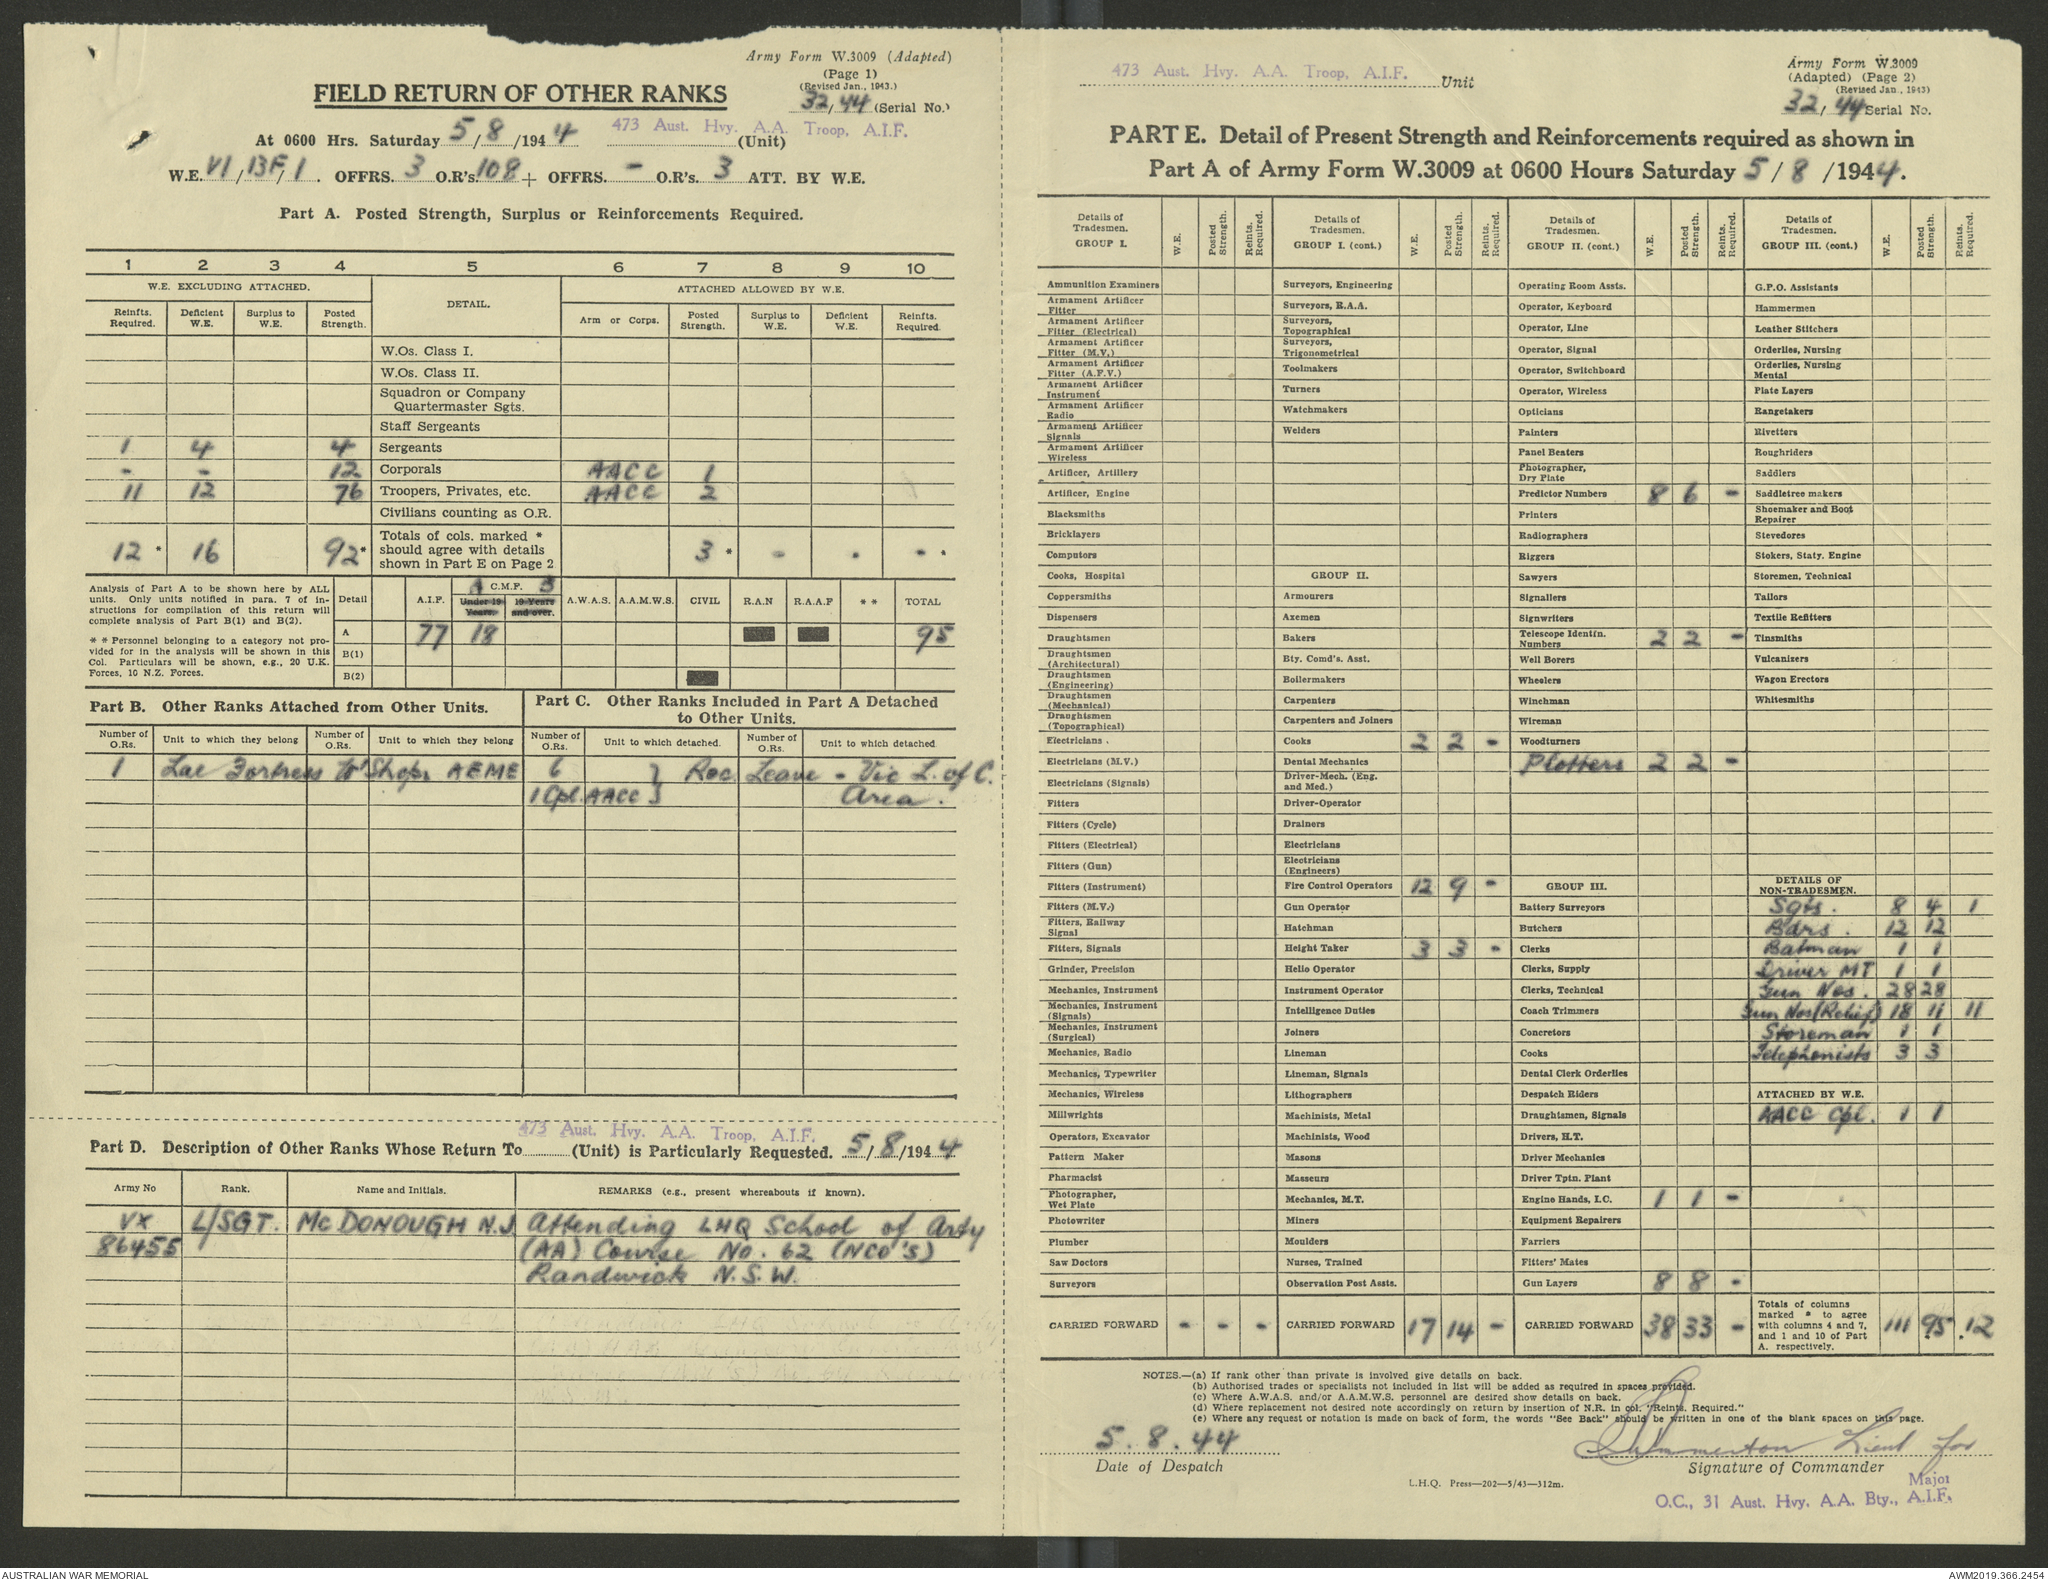 Army Form W.3009 (Adapted)
(Page 1)
(Revised Jan., 1943.)
FIELD RETURN OF OTHER RANKS
32/44 (Serial No.)
At 0600 Hrs. Saturday 5/8/1944 473 Aust. Hvy. A.A. Troop, A.I.F. (Unit)
W.E. VI/13F/1. OFFRS. 3 O.R's. 108 + OFFRS. - O.R's. 3 ATT. BY W.E.
Part A. Posted Strength, Surplus or Reinforcements Required.
1 2 3 4 5 6 7 8 9 10
W.E. EXCLUDING ATTACHED. DETAIL. ATTACHED ALLOWED BY W.E.
Reinfts. Required. Deficient W.E. Surplus to W.E. Posted Strength. Arm or Corps. Posted Strength. Surplus to W.E. Deficient W.E. Reinfts. Required.
W.Os. Class I.
W.Os. Class II.
Squadron or Company Quartermaster Sgts.
Staff Sergeants
1 4 4 Sergeants
- - 12 Corporals AACC 1
11 12 76 Troopers, Privates, etc. AACC 2
Civilians counting as O.R.
12 * 16 92 * Totals of cols. marked * should agree with details shown in Part E on Page 2 3 * - . - *
Analysis of Part A to be shown here by ALL
units. Only units notified in para. 7 of in-
structions for compilation of this return will
complete analysis of Part B(1) and B(2).
* * Personnel belonging to a category not pro-
vided for in the analysis will be shown in this
Col. Particulars will be shown, e.g., 20 U.K.
Forces, 10 N.Z. Forces.
Detail A.I.F. A C.M.F. B A.W.A.S. A.A.M.W.S. CIVIL R.A.N R.A.A.F * * TOTAL
Under 19 Years. 19 Years and over.
A 77 18 95
B(1)
B(2)
Part B. Other Ranks Attached from Other Units.
Part C. Other Ranks Included in Part A Detached
to Other Units.
Number of O.Rs. Unit to which they belong Number of O.Rs. Unit to which they belong Number of O.Rs. Unit to which detached. Number of O.Rs. Unit to which detached
1 Lae Fortress W'Shops AEME 6 } Rec. Leave - Vic L. of C.
1 Cpl. AACC } Area.
473 Aust. Hvy. A.A. Troop, A.I.F.
Part D. Description of Other Ranks Whose Return To (Unit) is Particularly Requested. 5/8/1944
Army No Rank. Name and Initials. REMARKS (e.g., present whereabouts if known).
VX L/SGT. McDONOUGH N.J. Attending LHQ School of Arty
86455 (AA) Course No. 62 (NCO'S)
Randwick N.S.W.
473 Aust. Hvy. A.A. Troop, A.I.F. Unit
Army Form W.3009
(Adapted) (Page 2)
(Revised Jan., 1943)
32/44 Serial No.
PART E. Detail of Present Strength and Reinforcements required as shown in
Part A of Army Form W.3009 at 0600 Hours Saturday 5/8/1944.
Details of Tradesmen. GROUP I. W.E. Posted Strength. Reints. Required.
Ammunition Examiners
Armament Artificer Fitter
Armament Artificer Fitter (Electrical)
Armament Artificer Fitter (M.V.)
Armament Artificer Fitter (A.F.V.)
Armament Artificer Instrument
Armament Artificer Radio
Armament Artificer Signals
Armament Artificer Wireless
Artificer, Artillery
Artificer, Engine
Blacksmiths
Bricklayers
Computors
Cooks, Hospital
Coppersmiths
Dispensers
Draughtsmen
Draughtsmen (Architectural)
Draughtsmen (Engineering)
Draughtsmen (Mechanical)
Draughtsmen (Topographical)
Electricians .
Electricians (M.V.)
Electricians (Signals)
Fitters
Fitters (Cycle)
Fitters (Electrical)
Fitters (Gun)
Fitters (Instrument)
Fitters (M.V.)
Fitters, Railway Signal
Fitters, Signals
Grinder, Precision
Mechanics, Instrument
Mechanics, Instrument (Signals)
Mechanics, Instrument (Surgical)
Mechanics, Radio
Mechanics, Typewriter
Mechanics, Wireless
Millwrights
Operators, Excavator
Pattern Maker
Pharmacist
Photographer, Wet Plate
Photowriter
Plumber
Saw Doctors
Surveyors
CARRIED FORWARD - - -
Details of Tradesmen. GROUP I. (cont.) W.E. Posted Strength. Reints. Required.
Surveyors, Engineering
Surveyors, R.A.A.
Surveyors, Topographical
Surveyors, Trigonometrical
Toolmakers
Turners
Watchmakers
Welders
GROUP II.
Armourers
Axemen
Bakers
Bty. Comd's. Asst.
Boilermakers
Carpenters
Carpenters and Joiners
Cooks 2 2 -
Dental Mechanics
Driver-Mech. (Eng. and Med.)
Driver-Operator
Drainers
Electricians
Electricians (Engineers)
Fire Control Operators 12 9 -
Gun Operator
Hatchman
Height Taker 3 3 -
Helio Operator
Instrument Operator
Intelligence Duties
Joiners
Lineman
Lineman, Signals
Lithographers
Machinists, Metal
Machinists, Wood
Masons
Masseurs
Mechanics, M.T.
Miners
Moulders
Nurses, Trained
Observation Post Assts.
CARRIED FORWARD 17 14 -
Details of Tradesmen. GROUP II. (cont.) W.E. Posted Strength. Reints. Required.
Operating Room Assts.
Operator, Keyboard
Operator, Line
Operator, Signal
Operator, Switchboard
Operator, Wireless
Opticians
Painters
Panel Beaters
Photographer, Dry Plate
Predictor Numbers 8 6 -
Printers
Radiographers
Riggers
Sawyers
Signallers
Signwriters
Telescope Identifn. Numbers 2 2 -
Well Borers
Wheelers
Winchman
Wireman
Woodturners
Plotters 2 2 -
GROUP III.
Battery Surveyors
Butchers
Clerks
Clerks, Supply
Clerks, Technical
Coach Trimmers
Concretors
Cooks
Dental Clerk Orderlies
Despatch Riders
Draughtsmen, Signals
Drivers, H.T.
Driver Mechanics
Driver Tptn. Plant
Engine Hands, I.C. 1 1 -
Equipment Repairers
Farriers
Fitters' Mates
Gun Layers 8 8 -
CARRIED FORWARD 38 33 -
Details of Tradesmen. GROUP III. (cont.) W.E. Posted Strength. Reints. Required.
G.P.O. Assistants
Hammermen
Leather Stitchers
Orderlies, Nursing
Orderlies, Nursing Mental
Plate Layers
Rangetakers
Rivetters
Roughriders
Saddlers
Saddletree makers
Shoemaker and Boot Repairer
Stevedores
Stokers, Staty. Engine
Storemen, Technical
Tailors
Textile Refitters
Tinsmiths
Vulcanizers
Wagon Erectors
Whitesmiths
DETAILS OF NON-TRADESMEN.
Sgts. 8 4 1
Bdrs. 12 12
Batman 1 1
Driver MT 1 1
Gun Nos. 28 28
Gun Nos (Relief) 18 11 11
Storeman 1 1
Telephonists 3 3
ATTACHED BY W.E.
AACC Cpl. 1 1
Totals of columns marked * to agree with columns 4 and 7, and 1 and 10 of Part A. respectively. 111 95 12
NOTES.—(a) If rank other than private is involved give details on back.
(b) Authorised trades or specialists not included in list will be added as required in spaces provided.
(c) Where A.W.A.S. and/or A.A.M.W.S. personnel are desired show details on back.
(d) Where replacement not desired note accordingly on return by insertion of N.R. in col. "Reints. Required."
(e) Where any request or notation is made on back of form, the words "See Back" should be written in one of the blank spaces on this page.
5.8.44
Date of Despatch
Lieut for
Signature of Commander
Major
L.H.Q. Press—202—5/43—312m.
O.C., 31 Aust. Hvy. A.A. Bty., A.I.F.
AUSTRALIAN WAR MEMORIAL
AWM2019.366.2454